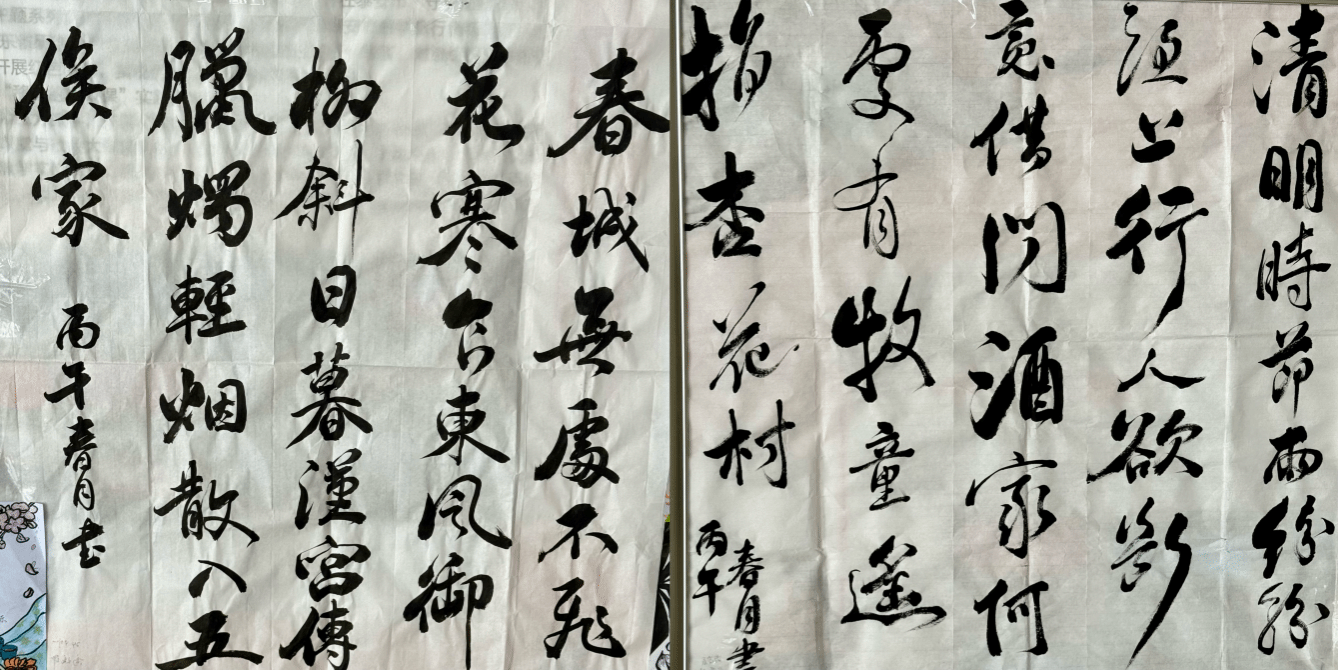 清明時節雨紛紛
路上行人欲斷
魂借問酒家何
處有牧童遙
指杏花村
丙午
春月書
春城無處不飛
花寒食東風御
柳斜日暮漢宮傳
臘燭輕烟散入五
侯家
丙午春月書